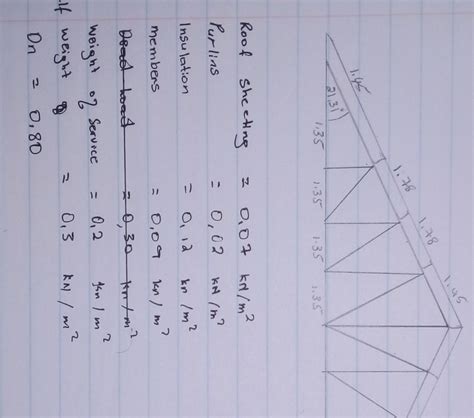 1.45
1.78
1.78
1.45
21.31°
1.35
1.35
1.35
1.35
Roof sheeting = 0,07 kN/m²
Purlins = 0,02 kN/m²
Insulation = 0,12 kn/m²
members = 0,09 kn/m²
Dead Load = 0,30 kn/m²
Weight of service = 0,2 kn/m²
lf weight = 0,3 kN/m²
Dn = 0,80